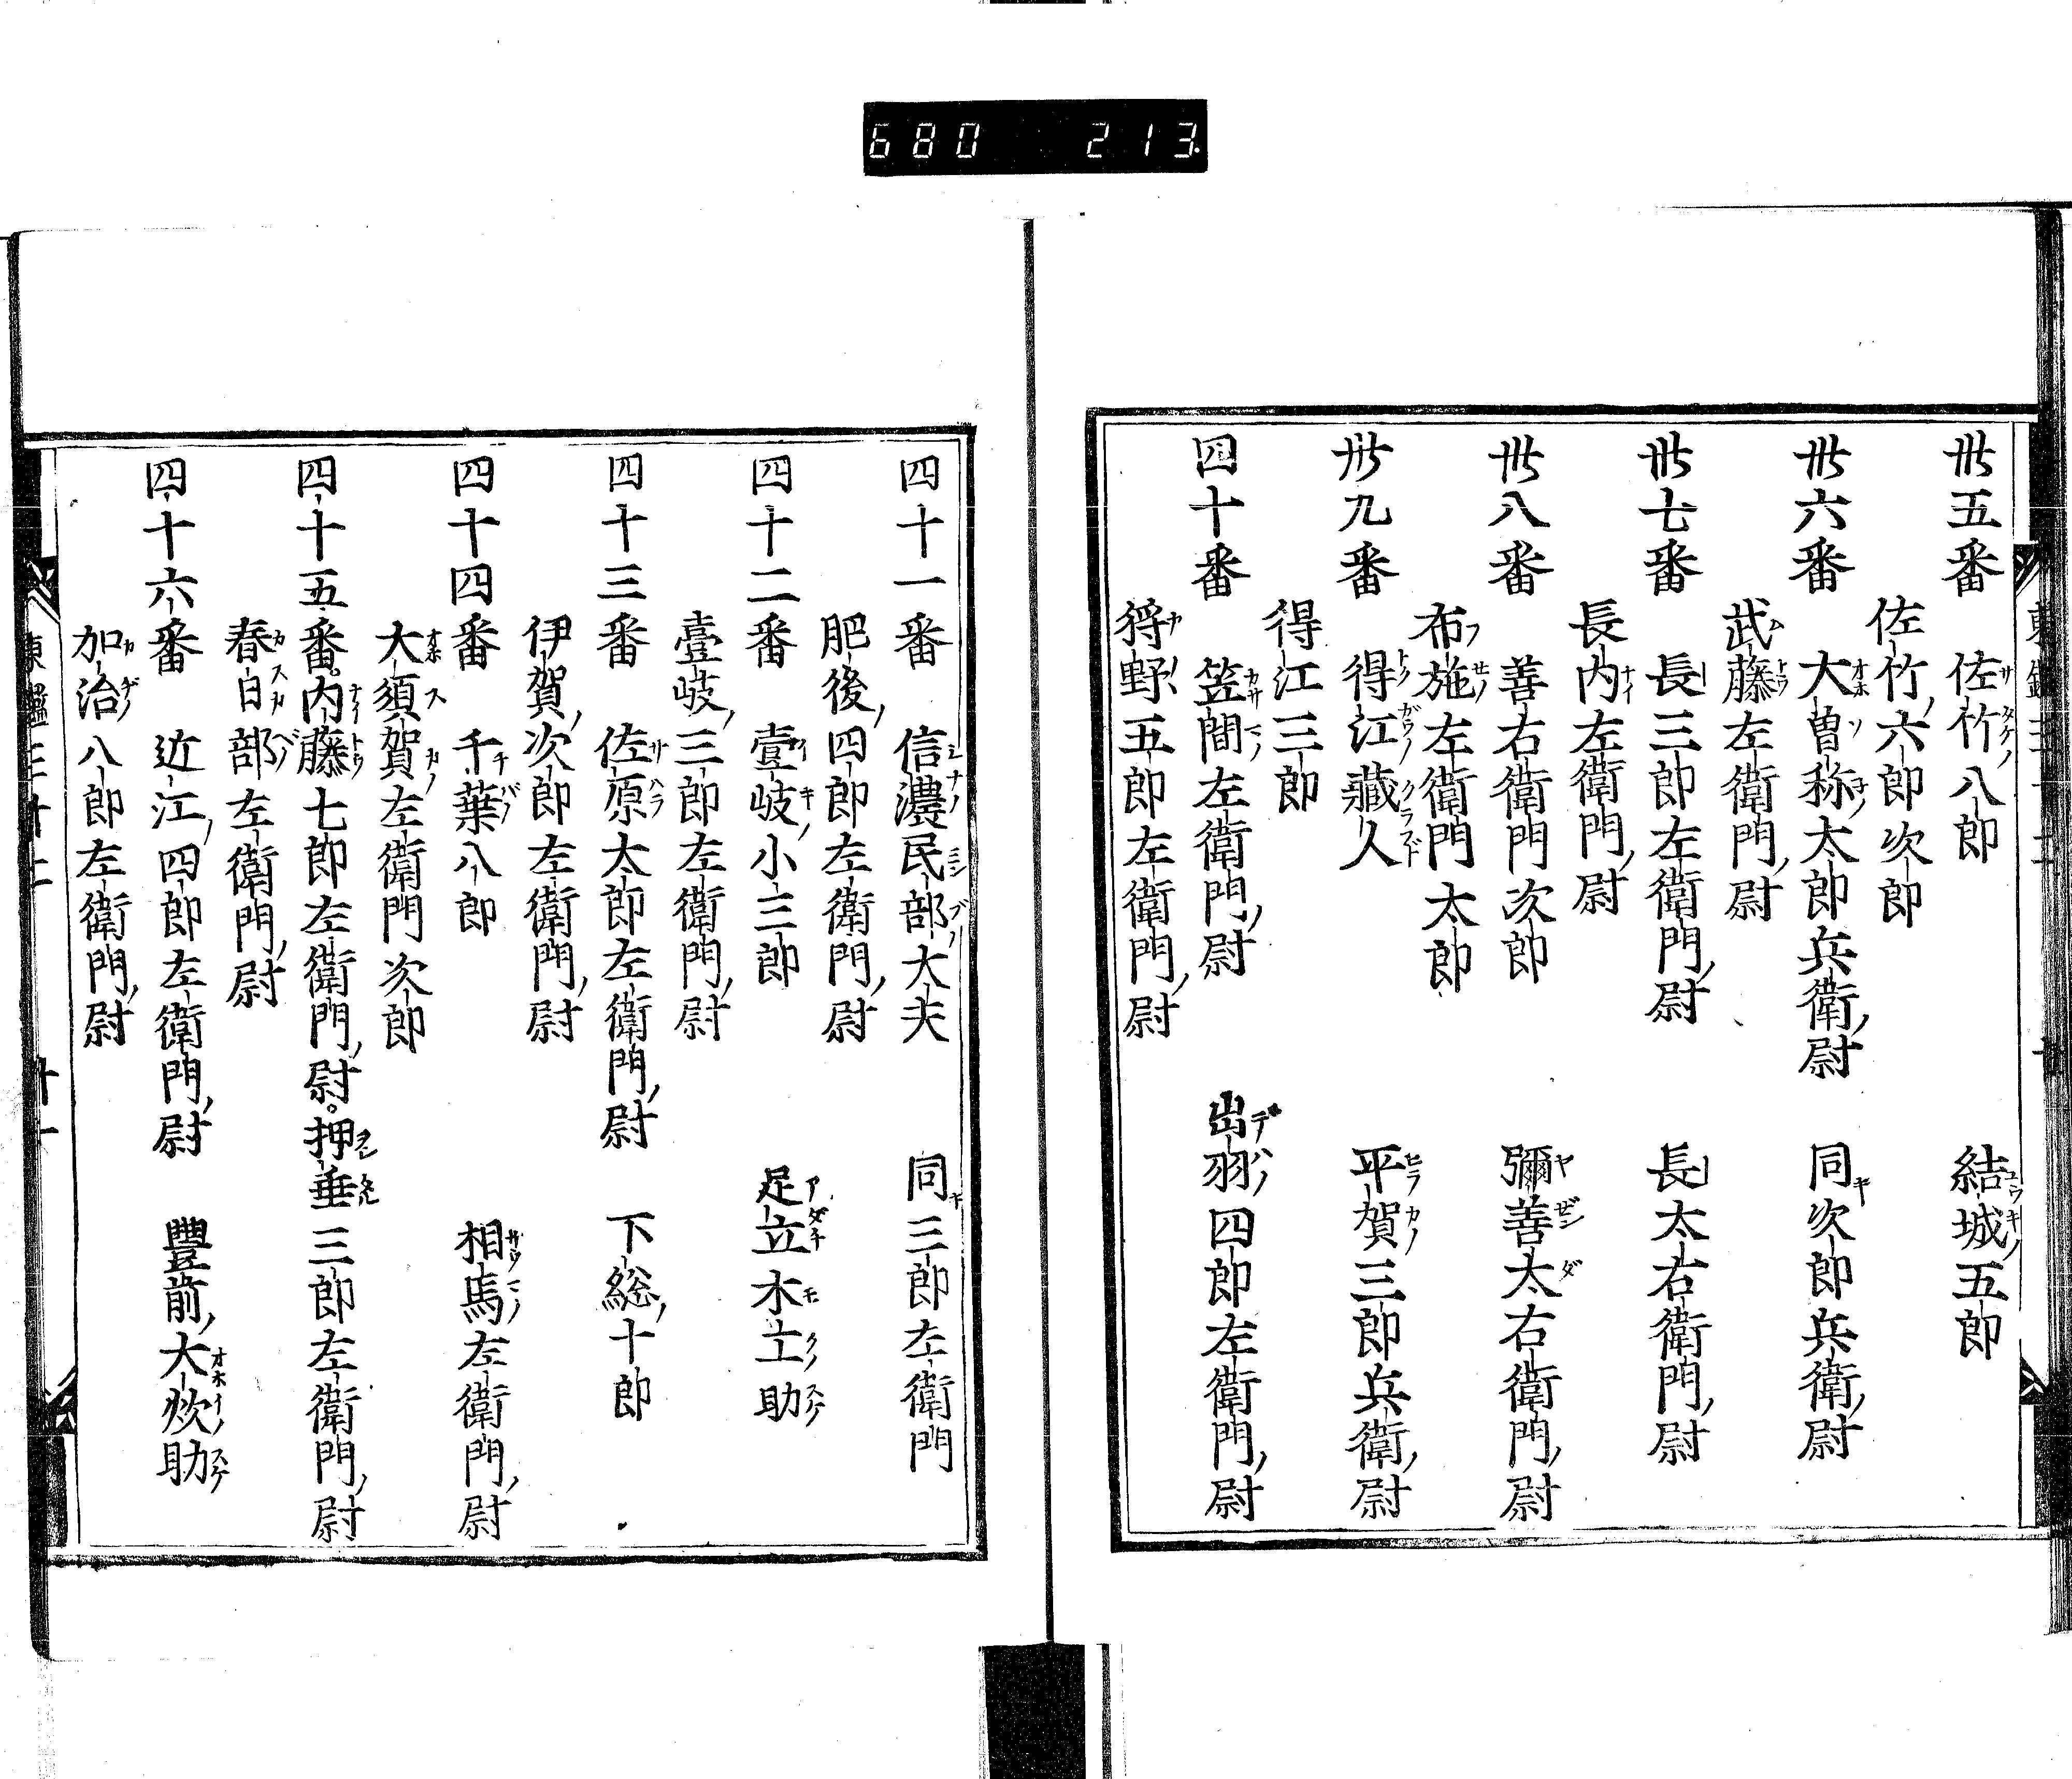 680 213
丗五番 佐竹八郎 結城五郎
佐竹六郎次郎
丗六番 大曽称太郎兵衛尉 同次郎兵衛尉
武藤左衛門尉
丗七番 長三郎左衛門尉 長太右衛門尉
長内左衛門尉
丗八番 善右衛門次郎 彌善太右衛門尉
布施左衛門太郎
丗九番 得江藏人 平賀三郎兵衛尉
得江三郎
四十番 笠間左衛門尉 出羽四郎左衛門尉
狩野五郎左衛門尉
四十一番 信濃民部大夫 同三郎左衛門
肥後四郎左衛門尉
四十二番 壹岐小三郎 足立木工助
壹岐三郎左衛門尉
四十三番 佐原太郎左衛門尉 下総十郎
伊賀次郎左衛門尉
四十四番 千葉八郎 相馬左衛門尉
大須賀左衛門次郎
四十五番。内藤七郎左衛門尉。押垂三郎左衛門尉
春日部左衛門尉
四十六番 近江四郎左衛門尉 豐前大炊助
加治八郎左衛門尉